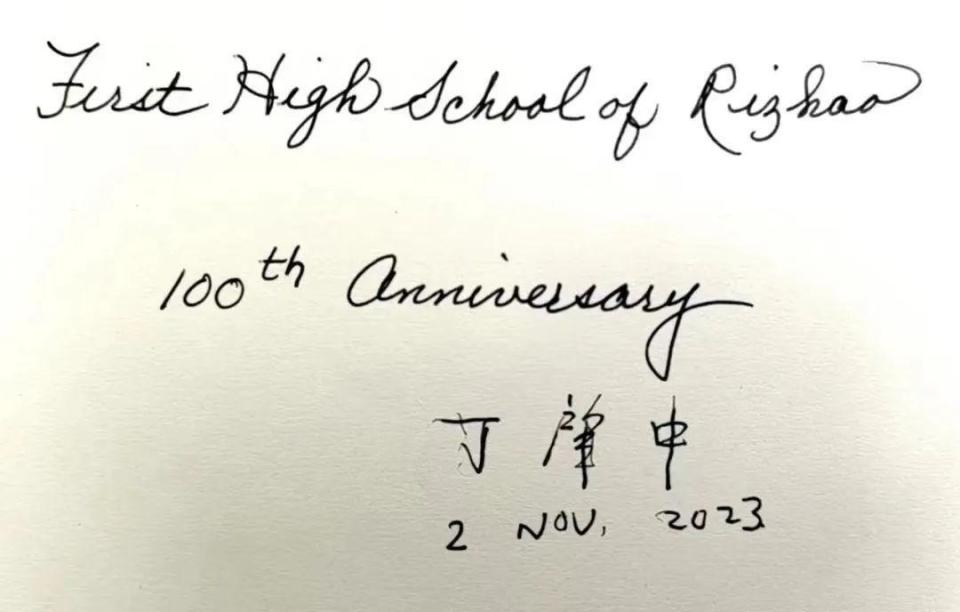 First High School of Rizhao
100th Anniversary
丁肇中
2 NOV, 2023